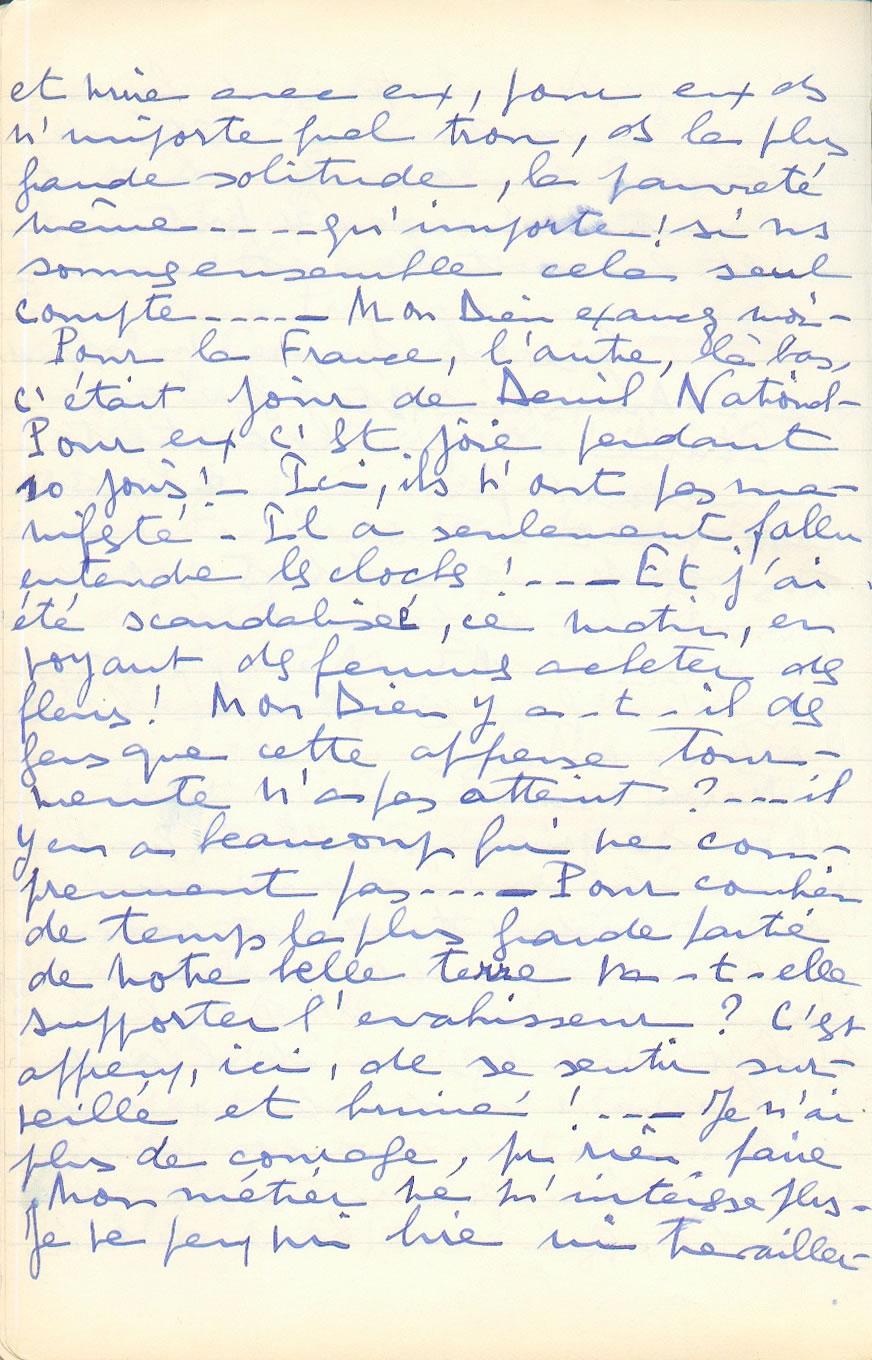 et vivre avec eux, pour eux ds
n'importe quel trou, ds la plus
grande solitude, la pauvreté
même----qu'importe! si ns
sommes ensemble cela seul
compte----- Mon Dieu exaucez moi-
Pour la France, l'autre, là bas,
c'était jour de Deuil National-
Pour eux c'est joie pendant
10 jours!- Ici, ils n'ont pas ma-
nifesté - Il a seulement fallu
entendre les cloches!---- Et j'ai
été scandalisée, ce matin, en
voyant des femmes acheter des
fleurs! Mon Dieu y a-t-il des
gens que cette affreuse tour-
mente n'a pas atteint?---il
y en a beaucoup qui ne com-
prennent pas---- Pour combien
de temps la plus grande partie
de notre belle terre va-t-elle
supporter l'evahisseur? C'est
affreux, ici, de se sentir sur-
veillé et brimé!---- Je n'ai
plus de courage, pr rien faire
Mon métier ne m'intéresse plus-
Je ne peux ni lire ni travailler-